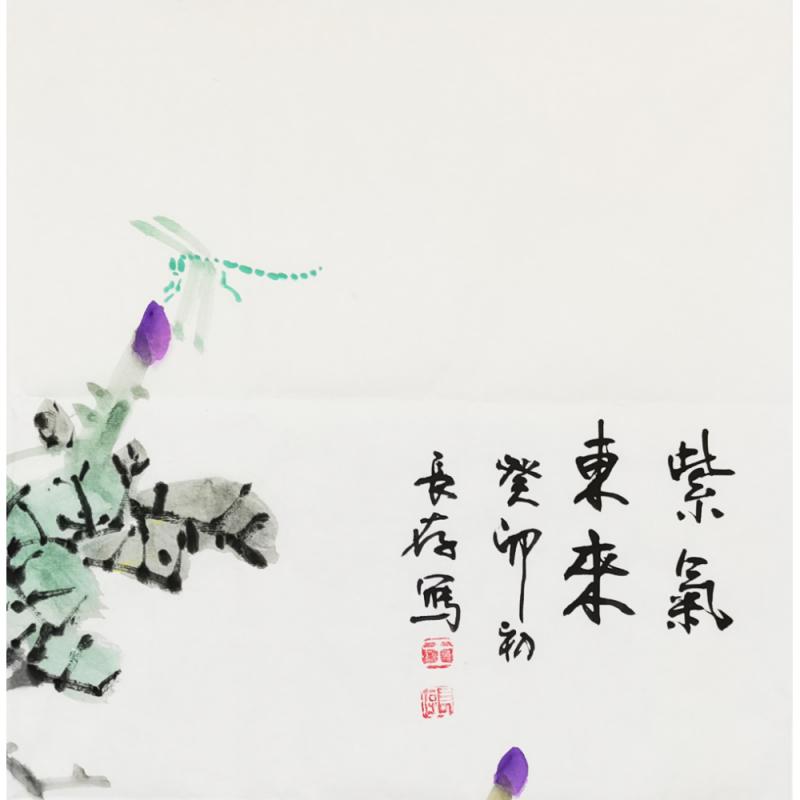 紫氣
東來
癸卯初
長存寫